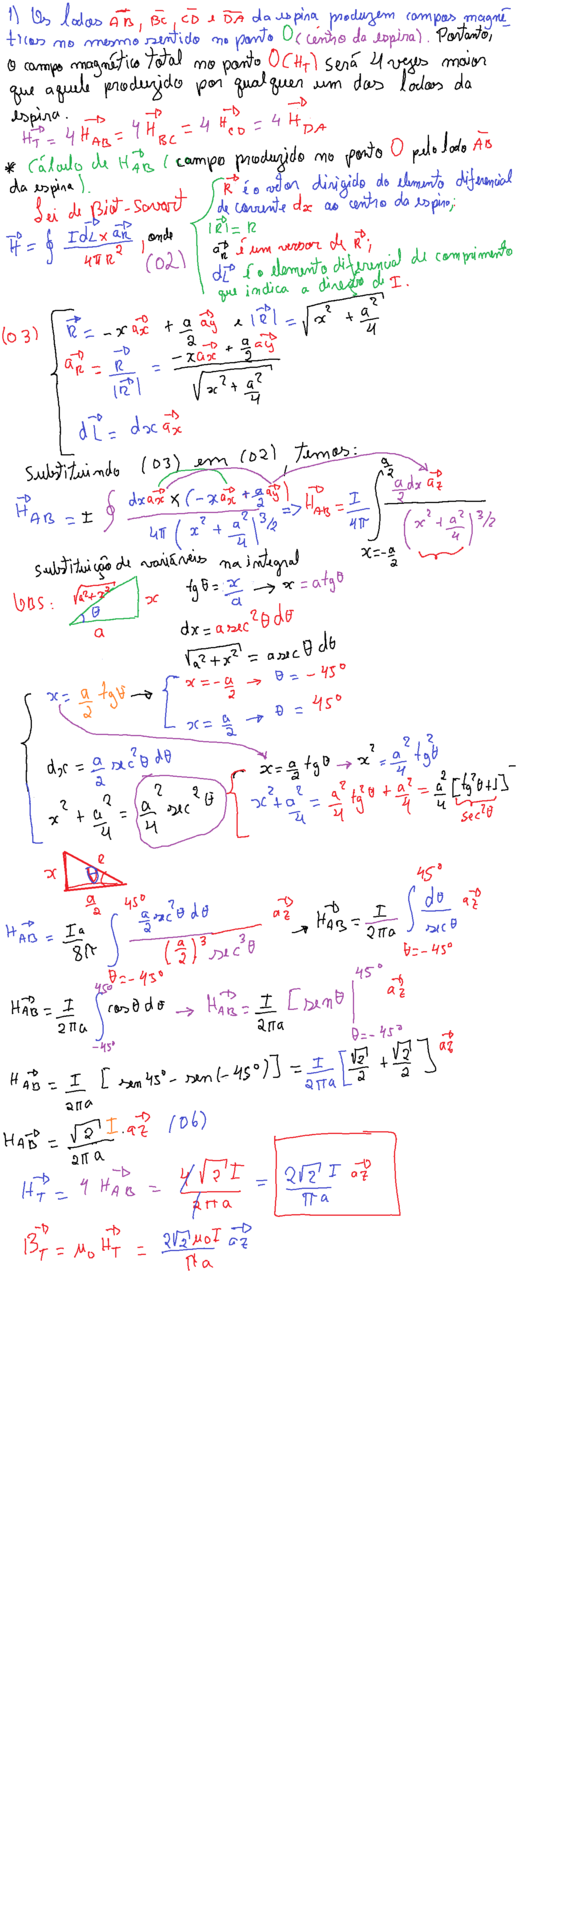 1) Os lados AB, BC, CD e DA da espira produzem campos magné-
ticos no mesmo sentido no ponto O (centro da espira). Portanto,
o campo magnético total no ponto O (H_T) será 4 vezes maior
que aquele produzido por qualquer um dos lados da
espira.
H_T = 4 H_AB = 4 H_BC = 4 H_CD = 4 H_DA
* Cálculo de H_AB (campo produzido no ponto O pelo lado AB
da espira).
Lei de Biot-Savart
H = ∮ (I dL × a_R) / (4πR²), onde (02)
R é o vetor dirigido do elemento diferencial
de corrente dx ao centro da espira;
|R| = R
a_R é um versor de R;
dL é o elemento diferencial de comprimento
que indica a direção de I.
(03) R = -x ax + a/2 ay e |R| = √(x² + a²/4)
a_R = R/|R| = (-x ax + a/2 ay) / √(x² + a²/4)
dL = dx ax
Substituindo (03) em (02), temos:
H_AB = I ∮ dx ax × (-x ax + a/2 ay) / (4π (x² + a²/4)^3/2) => H_AB = I/4π ∫_{x=-a/2}^{a/2} (a/2 dx az) / (x² + a²/4)^3/2
substituição de variáveis na integral
OBS: √(a²+x²) x θ a
tg θ = x/a → x = a tg θ
dx = a sec²θ dθ
√(a² + x²) = a sec θ dθ
x = a/2 tg θ → x = -a/2 → θ = -45°
x = a/2 → θ = 45°
dx = a/2 sec²θ dθ
x = a/2 tg θ → x² = a²/4 tg²θ
x² + a²/4 = a²/4 sec²θ
x² + a²/4 = a²/4 tg²θ + a²/4 = a²/4 [tg²θ + 1]
sec²θ
x θ a/2
H_AB = Ia/8π ∫_{θ=-45°}^{45°} (a/2 sec²θ dθ) / ((a/2)³ sec³θ) az → H_AB = I/2πa ∫_{θ=-45°}^{45°} dθ/sec θ az
H_AB = I/2πa ∫_{-45°}^{45°} cos θ dθ → H_AB = I/2πa [sen θ |_{θ=-45°}^{45°} az
H_AB = I/2πa [sen 45° - sen(-45°)] = I/2πa [√2/2 + √2/2] az
H_AB = √2/2πa I . az (06)
H_T = 4 H_AB = 4√2 I / 2πa = 2√2 I / πa az
B_T = μ0 H_T = 2√2 μ0 I / πa az